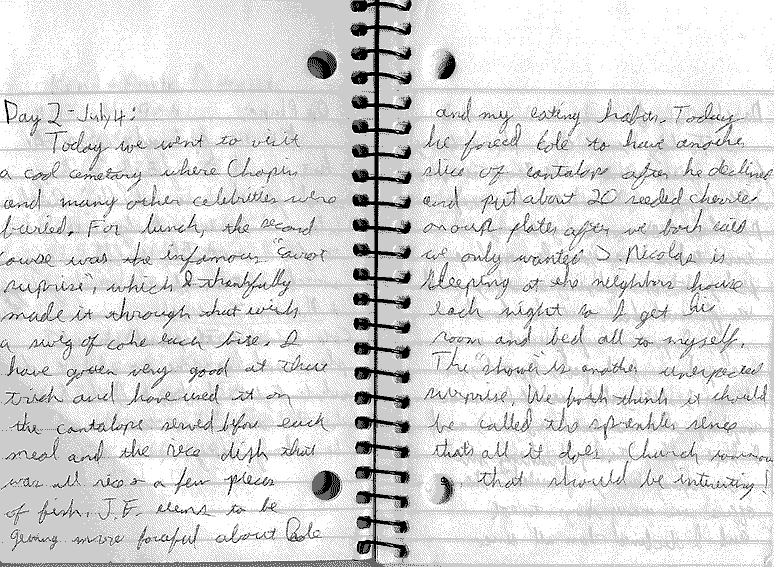 Day 2 - July 4:
Today we went to visit
a cool cemetery where Chopin
and many other celebrities were
buried. For lunch, the second
course was the infamous "carrot
surprise", which I thankfully
made it through that with
a swig of coke each bite. I
have gotten very good at these
trick and have used it on
the cantalope served before each
meal and the rice dish that
was all rice & a few pieces
of fish. J.F. seems to be
getting more forceful about Cole
and my eating habits. Today
he forced Cole to have another
slice of cantalope after he declined
and put about 20 seeded cherries
on our plates after we both said
we only wanted 5. Nicolas is
sleeping at the neighbors house
each night so I get his
room and bed all to myself.
The "shower" is another unexpected
surprise. We both think it should
be called the sprinkler since
thats all it does. Church tomorrow
that should be interesting!